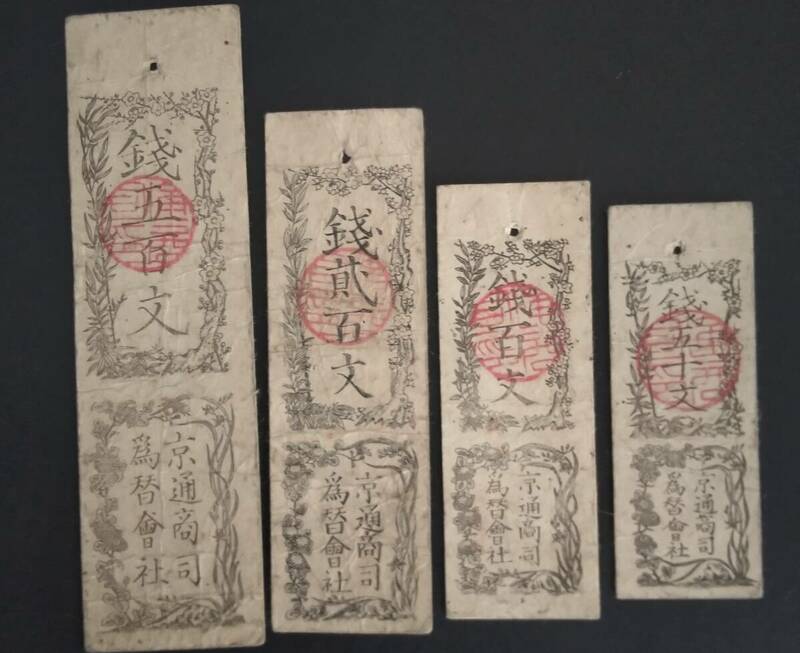 錢五百文
京通商司
為替會社
錢貳百文
京通商司
為替會社
錢百文
京通商司
為替會社
錢五十文
京通商司
為替會社